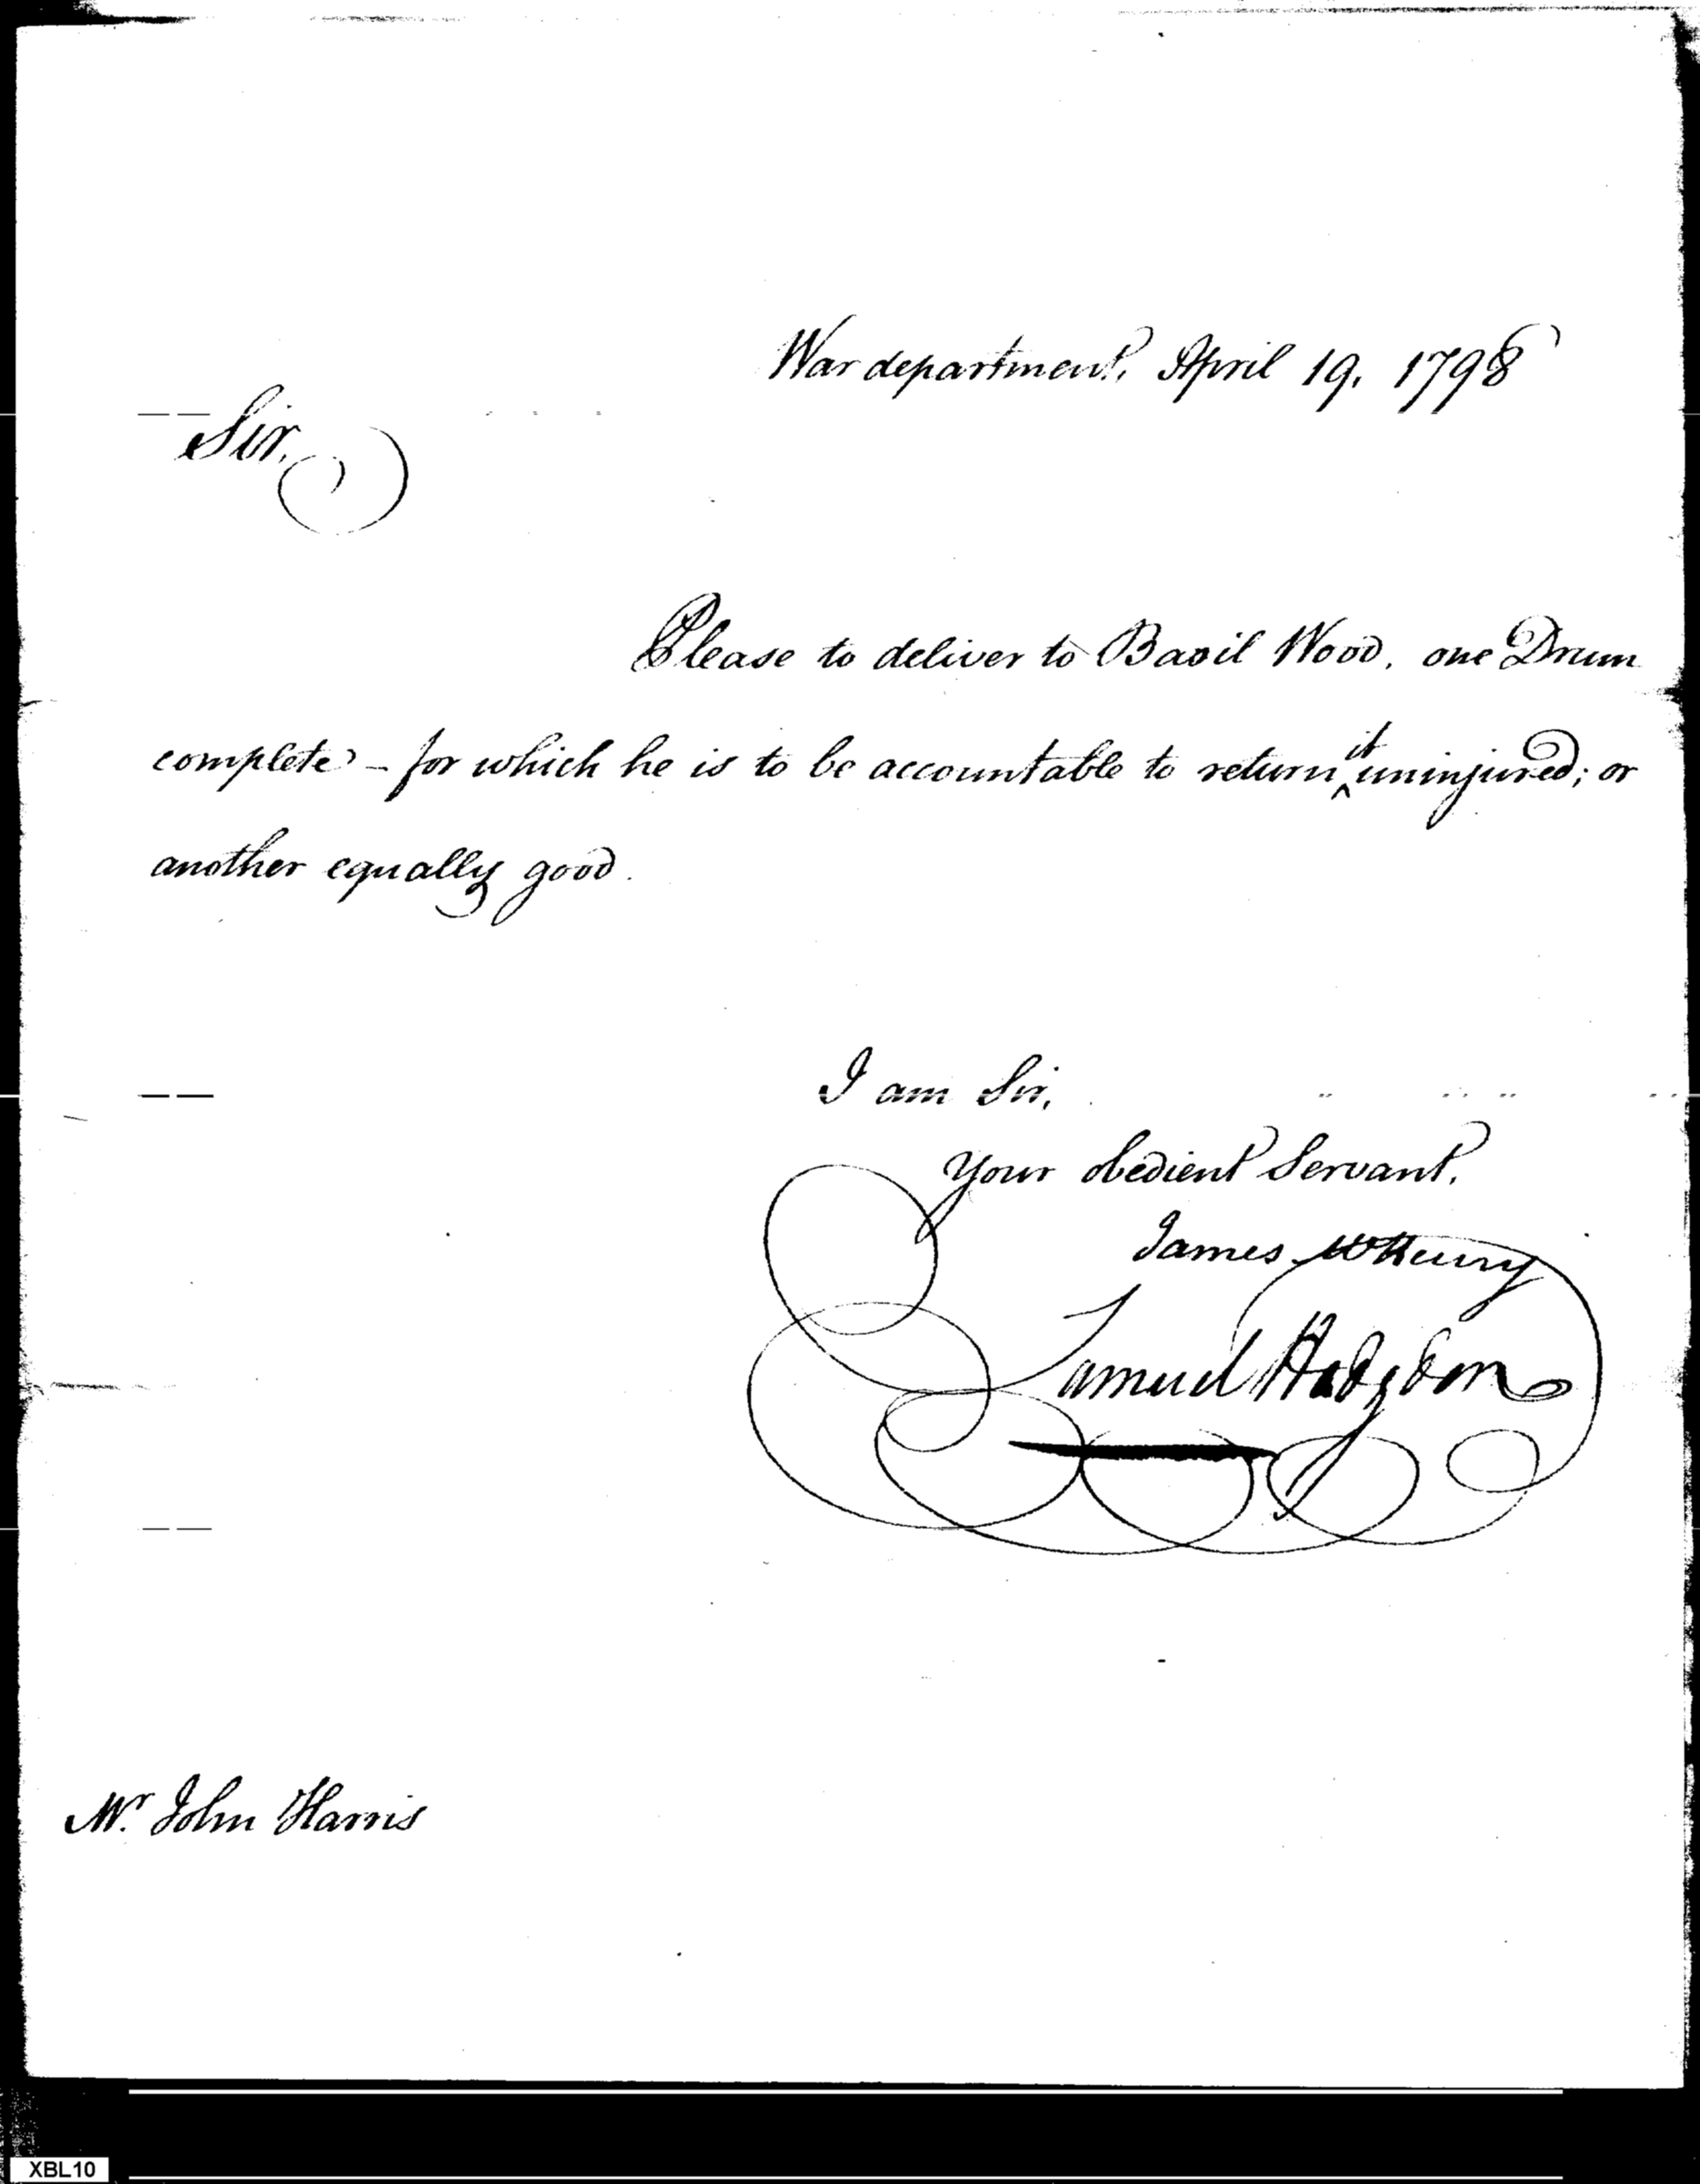 War department, April 19, 1798
Sir,
Please to deliver to Basil Wood, one Drum
complete - for which he is to be accountable to return ^it uninjured; or
another equally good.
I am Sir,
Your obedient Servant,
James McHenry
Samuel Hodgdon
Mr. John Harris
XBL10